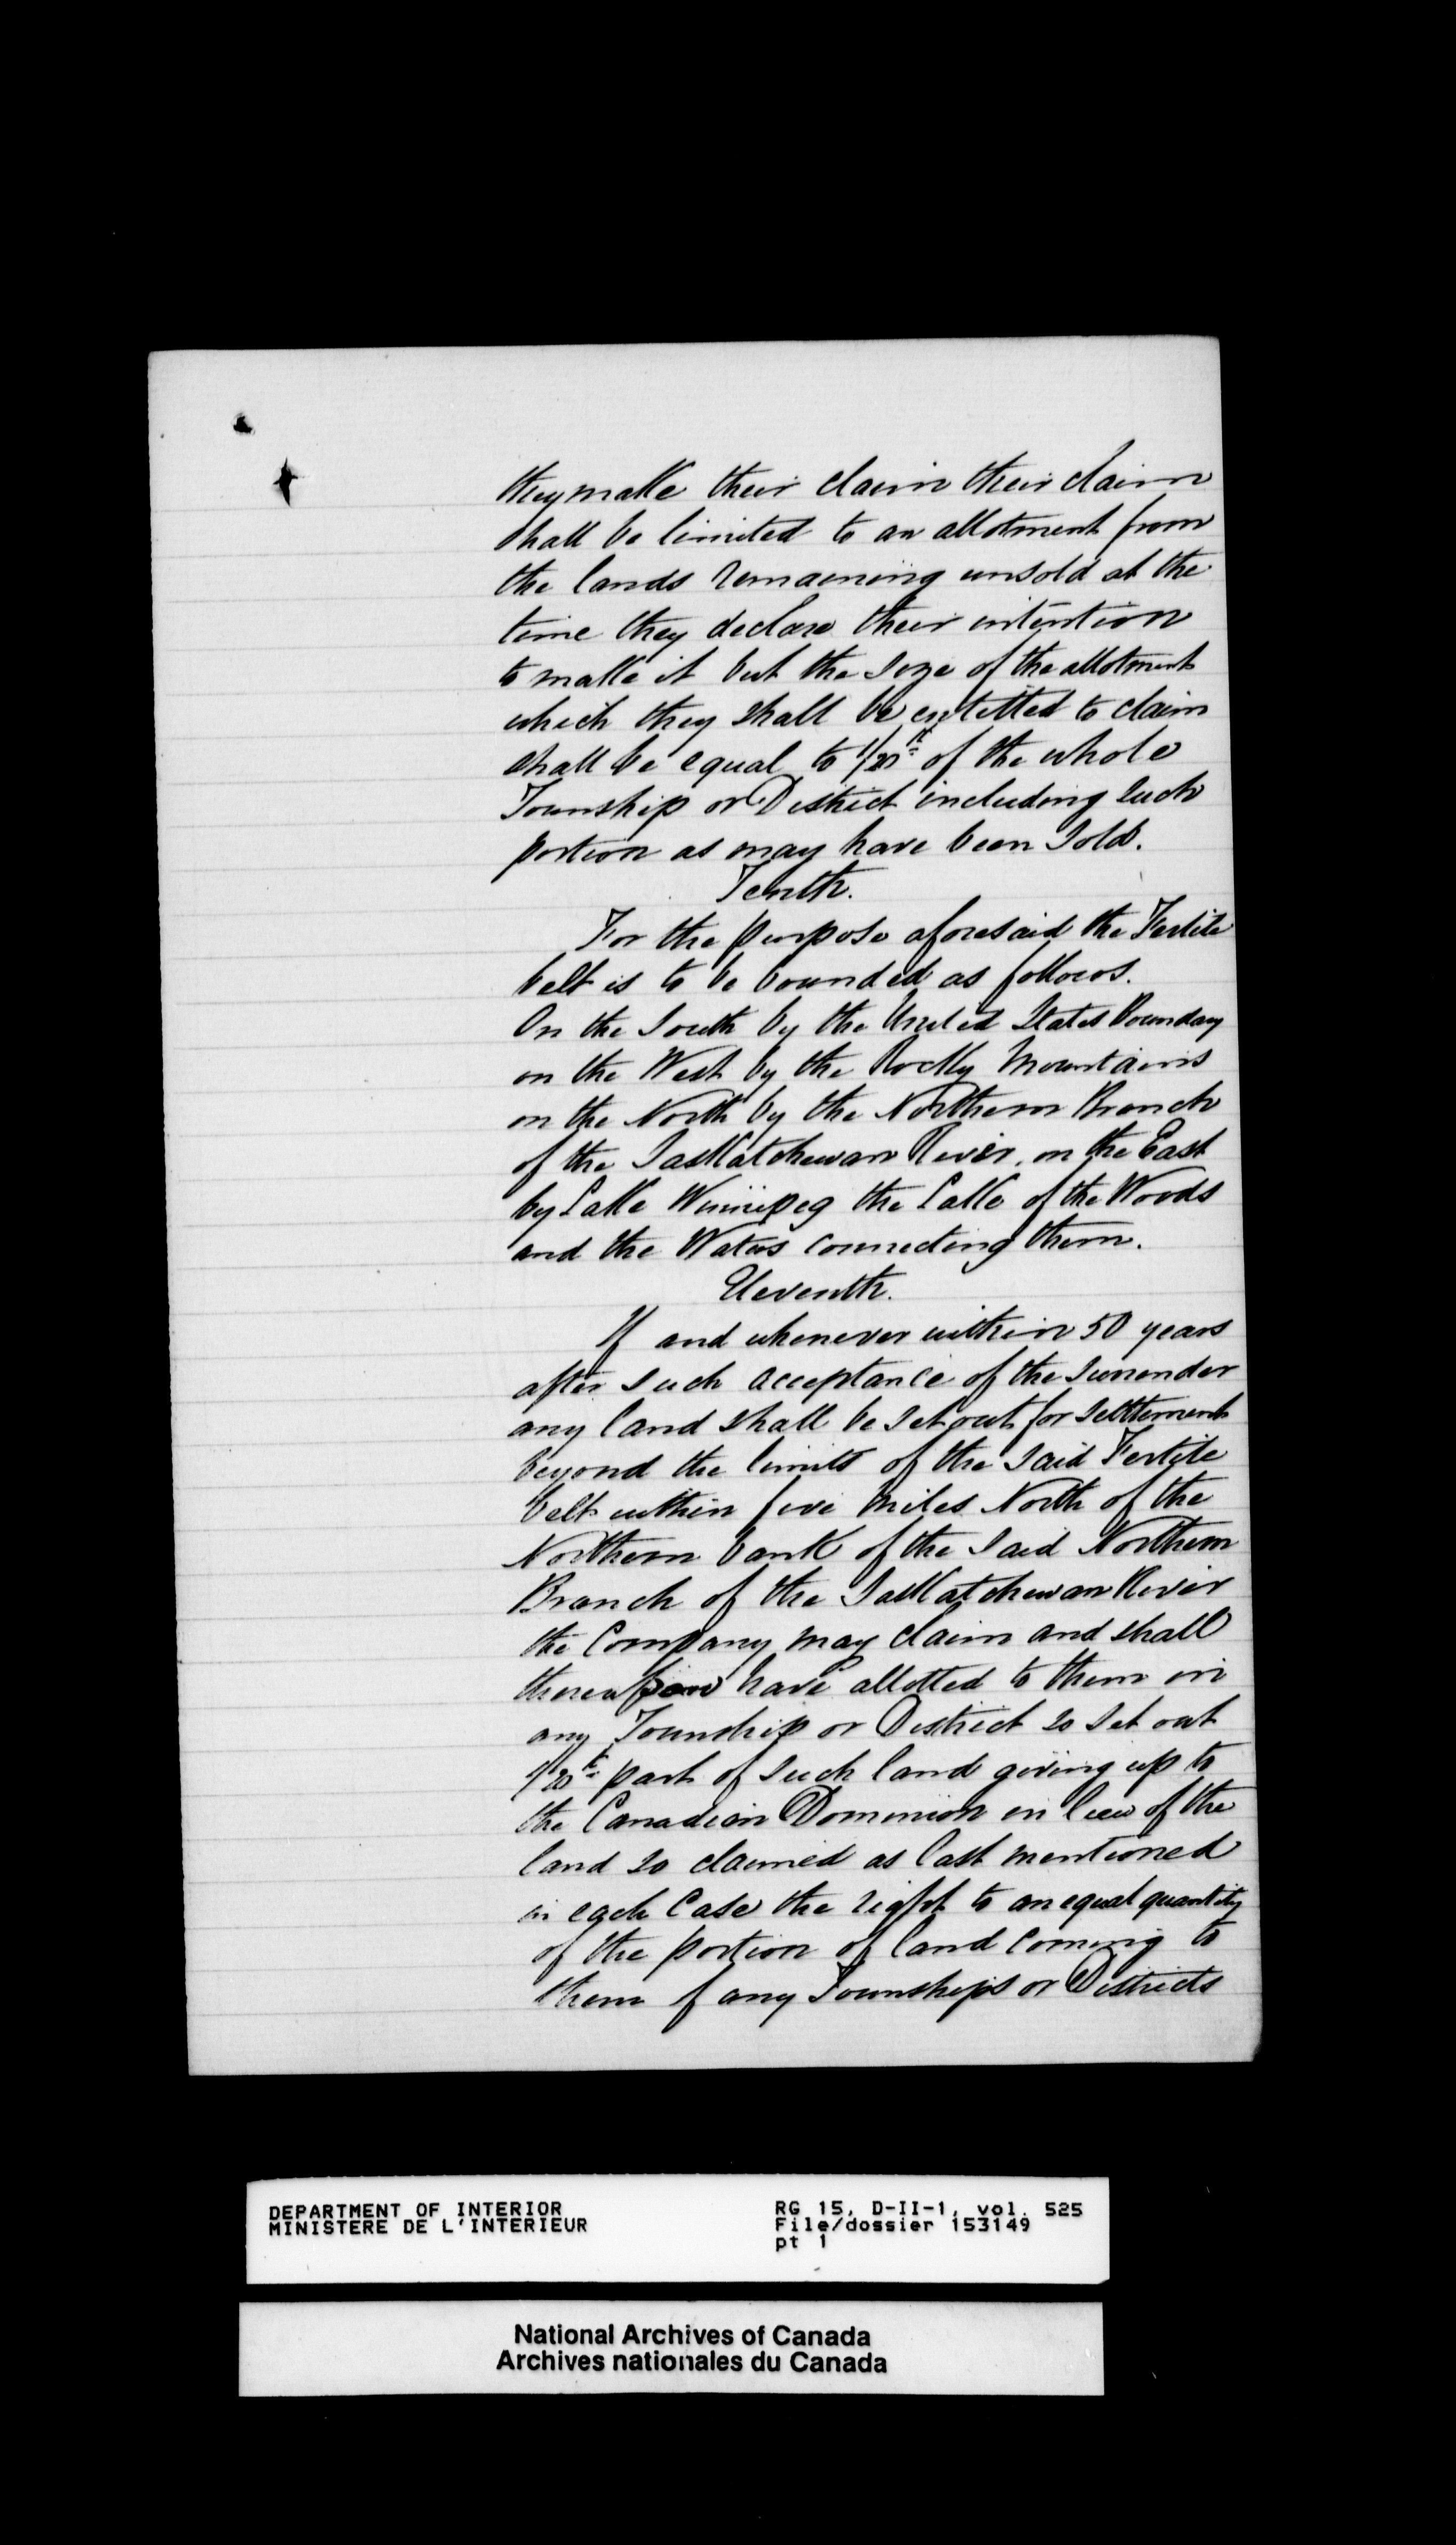 they make their claim their claim
shall be limited to an allotment from
the lands remaining unsold at the
time they declare their intention
to make it but the size of the allotment
which they shall be entitled to claim
shall be equal to 1/20th of the whole
Township or District including such
portion as may have been sold.
Tenth.
For the purpose aforesaid the Fertile
belt is to be bounded as follows.
On the South by the United States Boundary
on the West by the Rocky Mountains
on the North by the Northern Branch
of the Saskatchewan River, on the East
by Lake Winnipeg the Lake of the Woods
and the Waters connecting them.
Eleventh.
If and whenever within 50 years
after such acceptance of the surrender
any land shall be set out for settlement
beyond the limits of the said Fertile
belt within five miles North of the
Northern bank of the said Northern
Branch of the Saskatchewan River
the Company may claim and shall
thereupon have allotted to them in
any Township or District so set out
1/20th part of such land giving up to
the Canadian Dominion in lieu of the
land so claimed as last mentioned
in each Case the right to an equal quantity
of the portion of land coming to
them of any Townships or Districts
DEPARTMENT OF INTERIOR
MINISTERE DE L'INTERIEUR
RG 15, D-II-1, vol. 525
File/dossier 153149
pt 1
National Archives of Canada
Archives nationales du Canada